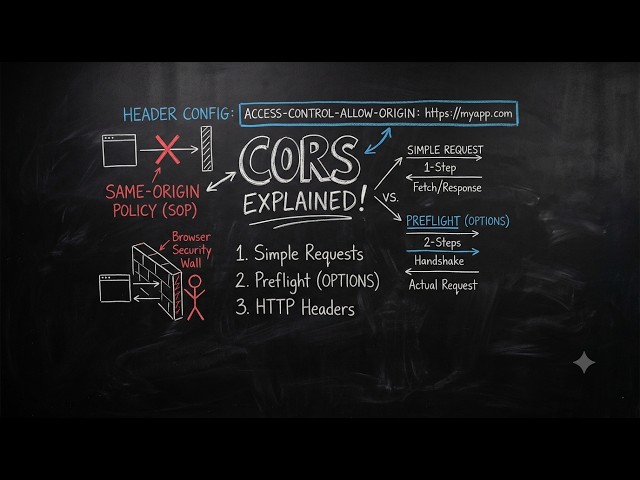 HEADER CONFIG: ACCESS-CONTROL-ALLOW-ORIGIN: https://myapp.com
CORS
EXPLAINED!
SAME-ORIGIN
POLICY (SOP)
Browser
Security
Wall
1. Simple Requests
2. Preflight (OPTIONS)
3. HTTP Headers
VS.
SIMPLE REQUEST
1-Step
Fetch/Response
PREFLIGHT (OPTIONS)
2-Steps
Handshake
Actual Request